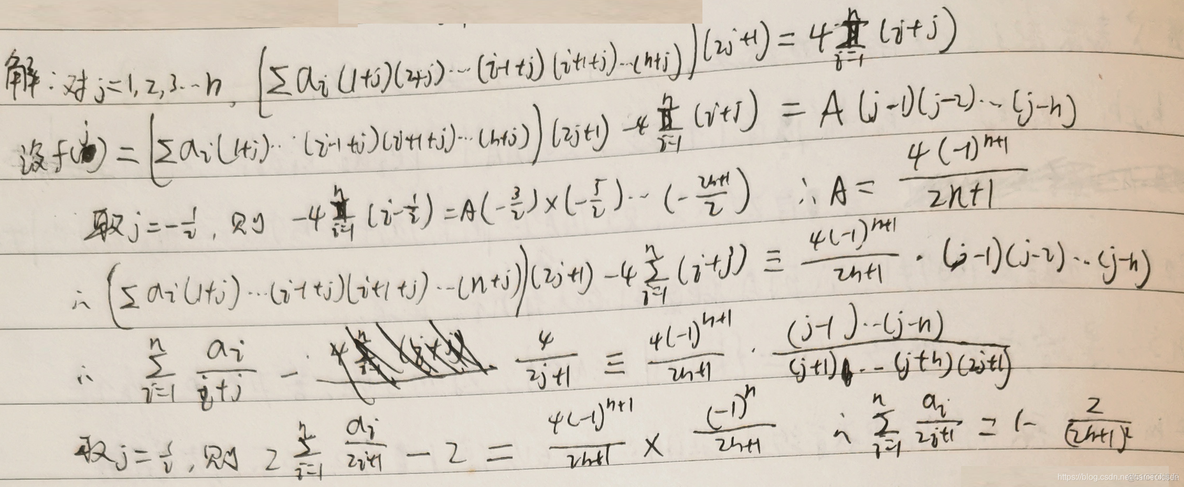 解:对j=1,2,3…n, [∑aᵢ(1+j)(2+j)…(i-1+j)(i+1+j)…(n+j)](2j+1)=4∏ⁿᵢ₌₁(i+j)
设f(j)=[∑aᵢ(1+j)…(i-1+j)(i+1+j)…(n+j)](2j+1)-4∏ⁿᵢ₌₁(i+j)=A(j-1)(j-2)…(j-n)
取j=-1/2,则 -4∏ⁿᵢ₌₁(i-1/2)=A(-3/2)×(-5/2)…(-(2n+1)/2) ∴A=4(-1)ⁿ⁺¹/(2n+1)
∴[∑aᵢ(1+j)…(i-1+j)(i+1+j)…(n+j)](2j+1)-4∑ⁿᵢ₌₁(i+j)≡4(-1)ⁿ⁺¹/(2n+1)·(j-1)(j-2)…(j-n)
∴ ∑ⁿᵢ₌₁ aᵢ/(i+j) - 4/(2j+1) ≡ 4(-1)ⁿ⁺¹/(2n+1)·(j-1)…(j-n)/((j+1)…(j+n)(2j+1))
取j=1/2,则 2∑ⁿᵢ₌₁ aᵢ/(2i+1) - 2 = 4(-1)ⁿ⁺¹/(2n+1) × (-1)ⁿ/(2n+1) ∴∑ⁿᵢ₌₁ aᵢ/(2i+1) = 1- 2/(2n+1)²